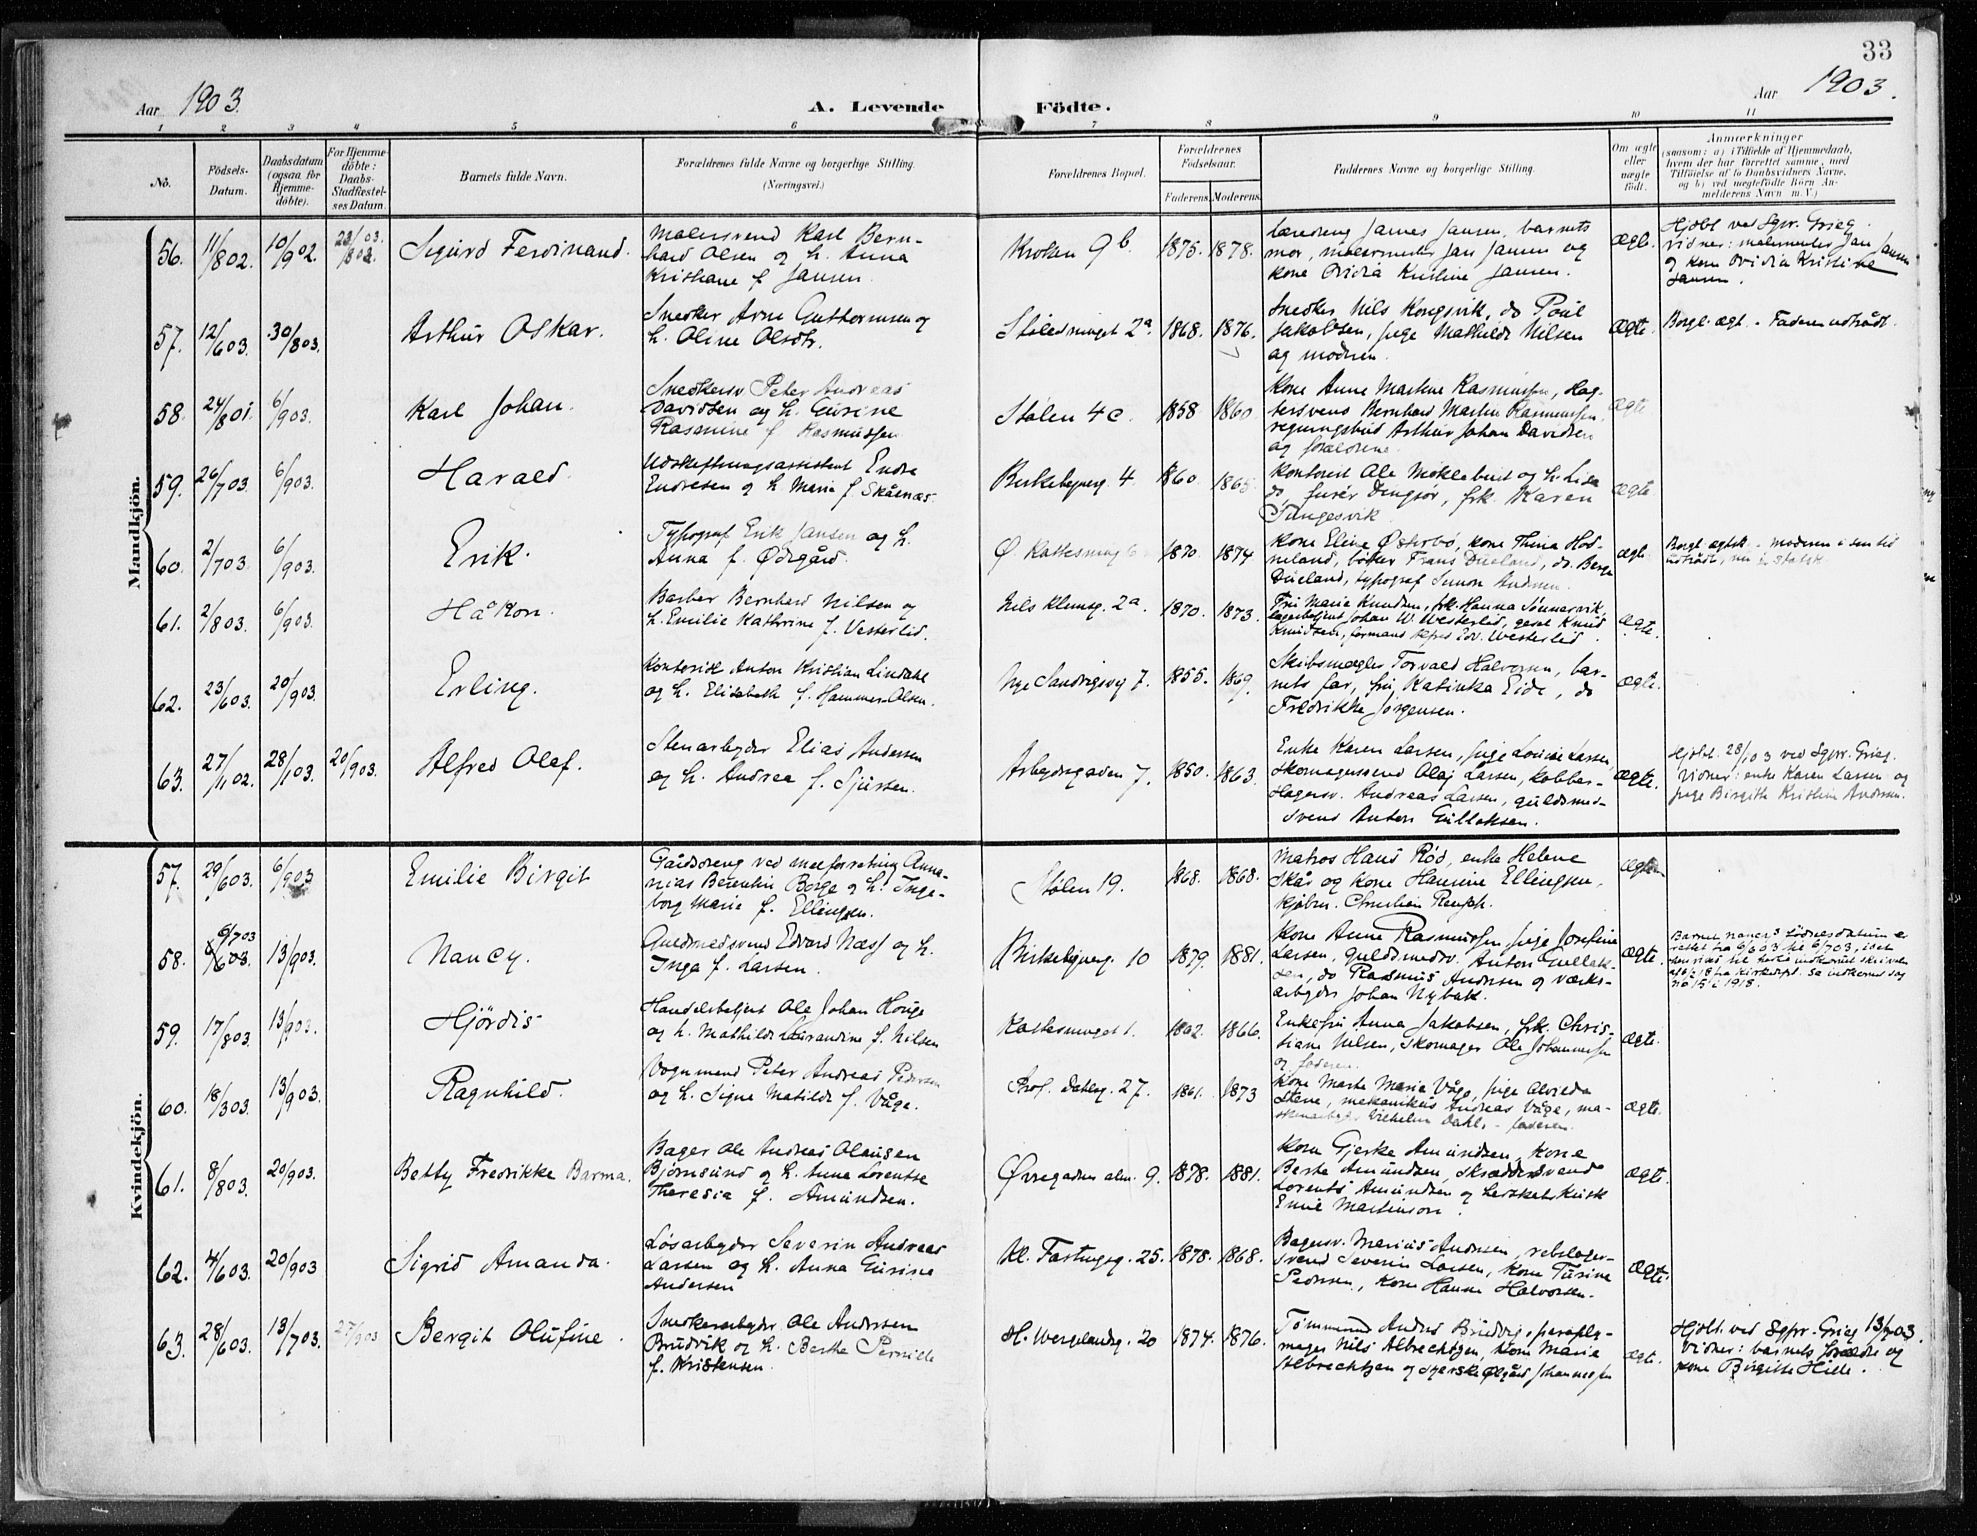 33
Aar 1903.
A. Levende Födte.
Aar 1903.
1 2 3 4 5 6 7 8 9 10 11
No.
Födsels-Datum.
Daabsdatum (ogsaa for Hjemme-döbte).
For Hjemme-döbte: Daabs-Stadfæstel-ses Datum.
Barnets fulde Navn.
Forældrenes fulde Navne og borgerlige Stilling. (Næringsvei.)
Forældrenes Bopæl.
Forældrenes Födselsaar.
Faderens. Moderens.
Faddernes Navne og borgerlige Stilling.
Om ægte eller uægte födt.
Anmærkninger
(saasom: a) i Tilfælde af Hjemmedaab, hvem der har forrettet samme, med Tilföielse af to Daabsvidners Navne, og b) ved uægtefödte Börn An-melderens Navn m. V.)
Mandkjön.
56. 11/8 02. 10/9 02. 23/8 03. Sigurd Ferdinand.
Malersvend Karl Bern-
hard Olsen og h. Anna
Kristiane f. Jansen.
Kroken 9b. 1875. 1878.
barnets
mor, malermester Jan Jansen og
kone Ovidia Kristine Jansen.
ægte.
Hjdbt ved Sgpr. Grieg.
vidner: malermester Jan Jansen
og kone Ovidia Kristine
Jansen.
57. 12/6 03. 30/8 03. Arthur Oskar.
Snedker Arne Guttormsen og
h. Oline Olsdtr.
Stølesmuget 2a 1868. 1876.
Snedker Nils Kongsvik, do Poul
Jakobsen, pige Mathilde Nilsen
og modren.
ægte.
Borgl. ægt. - Faderen udtrådt.
58. 24/8 01. 6/9 03. Karl Johan.
Snedkersv. Peter Andreas
Davidsen og h. Gurine
Rasmine f. Rasmussen
Stølen 4c. 1858 1860
Kone Anne Martine Rasmussen, Hag-
Bernhard Martin Rasmussen,
regningsbud Arthur Johan Davidsen
og forældrene.
ægte
59. 26/7 03. 6/9 03. Harald.
Udskiftningsassistent Endre
Endresen og h. Marie f. Skånes.
Birkebeinerg. 4. 1860 1865.
Kontorist Ole Møklebust og h. Lisa
do, frk. Karen
Tungesvik
ægte
60. 2/7 03. 6/9 03. Erik.
Typograf Erik Jansen og h.
Anna f. Ødegård.
Ø. Kattesmug 6 1870. 1874
Kone Eline Østerbø, kone Thina Hod-
neland, bøtker Frans Dueland, do. Berge
Dueland, typograf Simon Andersen.
ægte
Borgl. ægtsk. - modren i sen tid
udtrådt, nu i Statsk.
61. 2/8 03. 6/9 03. Håkon.
Barber Bernhard Nilsen og
h. Emilie Kathrine f. Vesterlid.
Nils Klimsg. 2a. 1870. 1873.
Fru Marie Knudsen, frk. Hanna Sønnarvik,
lagerbetjent Johan W. Westerlid, gesel Knud
Knudsen, formand Alfred Edv. Westerlid.
ægte.
62. 23/6 03. 20/9 03. Erling.
Kontorist Anton Kristian Lindahl
og h. Elisabeth f. Hammer-Olsen.
Nye Sandvigsvg 7. 1855. 1869.
Skibsmægler Torvald Halvorsen, bar-
nets far, fru Katinka Eide, do
Fredrikke Jørgensen.
ægte.
63. 27/11 02. 28/1 03. 20/9 03. Alfred Olaf.
Stenarbeider Elias Andersen
og h. Andrea f. Sjursen.
Arbeidergaden 7. 1850. 1863.
Enke Karen Larsen, pige Lovise Larsen,
Skomagersvend Olaf Larsen, kobber-
slagersv. Andreas Larsen, guldsmed-
svend Anton Gullaksen.
ægte.
Hjdbt. 28/1 03 ved Sgpr. Grieg.
Vidner: enke Karen Larsen og
pige Birgithe Kristine Andersen.
Kvindekjön.
57. 29/6 03. 6/9 03. Emilie Birgit
Gårdsdreng ved meieforretning Anna-
nias Berentin Borge og h. Inge-
borg Marie f. Ellingsen.
Stølen 19. 1868. 1868.
Matros Hans Rød, enke Helene
Skår og kone Hansine Ellingsen,
kjøbm. Christian
ægte
58. 6/7 03 6/6 03. 13/9 03. Nancy.
Guldsmedsvend Edvard Næss og h.
Inga f. Larsen.
Birkebeinerg. 10 1879. 1881.
Kone Anne Rasmussen, pige Josefine
Larsen, guldsmedsv. Anton Gullak-
sen, do Rasmus Andersen og værks-
arbeider Johan Nybak.
ægte.
Barnet Nancy's fødselsdatum er
rettet fra 6/6 03 til 6/7 03, i
henvisn. til
fra kirkedept. Se indkomne sag
no 15 i 1918.
59. 17/8 03. 13/9 03. Hjördis
Handelsbetjent Ole Johan Houge
og h. Mathilde Laurandine f. Nilsen
Kattesmuget 1. 1862. 1866.
Enkefru Anna Jakobsen, frk. Chris-
tiane Nilsen, skomager Ole Johannessen
og faderen.
ægte.
60. 18/3 03. 13/9 03. Ragnhild.
Vognmand Peter Andreas Pedersen
og h. Signe Matilde f. Våge.
Prof. Dahlsg. 27. 1861. 1873
Kone Marte Marie Våge, pige Alvilda
Stene, mekanikus Andreas Våge, ma-
skinarbeid. Vilhelm Dahl, - faderen.
ægte.
61. 8/8 03. 20/9 03. Betty Fredrikke Barma.
Bager Ole Andreas Olausen
Bjørnsund og h. Anna Lorentse
Theresia f. Amundsen.
Øvregaden alm. 9. 1878. 1881.
Kone Gjerske Amundsen, kone
Berte Amundsen, skræddersvend
Lorents Amundsen og herskabskusk
Emil Martinson.
ægte.
62. 4/6 03. 20/9 03 Sigrid Amanda.
Løsarbeyder Severin Andreas
Larsen og h. Anna Gurine
Andersen
Kl. Fastingsg. 25. 1878. 1868.
Bagersv. Marius Andersen, rebslager-
svend Severin Larsen, kone Turine
Pedersen, kone Hanne Halvorsen.
ægte.
63. 28/6 03. 13/7 03. 27/9 03 Bergit Olufine.
Snekkerarbeyder Ole Andersen
Brudvik og h. Berthe Pernille
f. Kristensen.
H. Wergelandsg. 20 1874. 1876.
Tømmermand Anders Brudvig, paraply-
mager Nils Albrechtsen, kone Marie
Albrechtsen og syerske Olgård Johannessen
ægte.
Hjdbt. ved Sgpr. Grieg 13/7 03.
Vidner: barnets forældre og
kone Birgitte Hille.